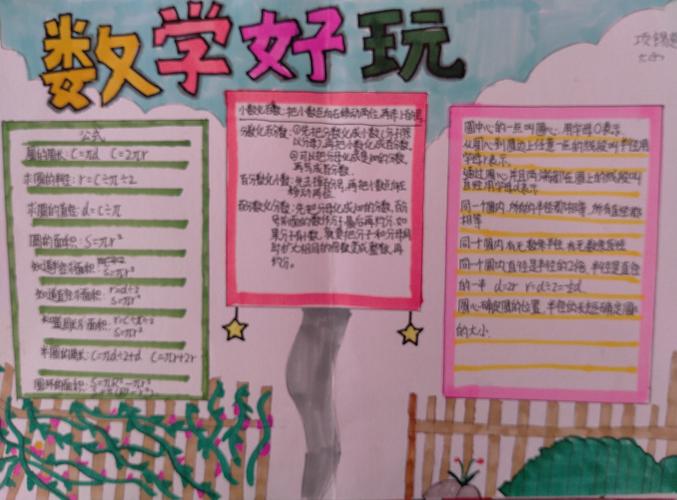 数学好玩
公式
圆的周长: C=πd C=2πr
求圆的半径: r=C÷π÷2
求圆的直径: d=C÷π
圆的面积: S=πr²
知道半径求面积: S=πr²
知道直径求面积: r=d÷2
S=πr²
知道周长求面积: r=C÷π÷2
S=πr²
半圆的周长: C=πd÷2+d C=πr+2r
圆环的面积: S=πR²-πr²
小数化百数: 把小数点向右移动两位, 再添上百号
分数化百分数: ①先把分数化成小数(分子除
以分母), 再把小数化成百分数。
②可以把分母化成是100的分数,
再写成百分数。
百分数化小数: 先去掉百分号, 再把小数点向左
移动两位
百分数化分数: 先把分母化成100的分数, 百分
号前面的数作分子最后再约分, 如
果分子有小数, 就要把分子和分母同
时扩大相同的倍数变成整数, 再
约分。
圆中心的一点叫圆心, 用字母O表示
从圆心到圆边上任意一点的线段叫半径用
字母r表示。
通过圆心并且两端都在圆上的线段叫
直径用字母d表示
同一个圆内, 所有的半径都相等, 所有直径都
相等
同一个圆内有无数条半径, 有无数条直径
同一个圆内直径是半径的2倍, 半径是直径
的一半 d=2r r=d÷2=½d
圆心确定圆的位置, 半径的长短确定圆
的大小